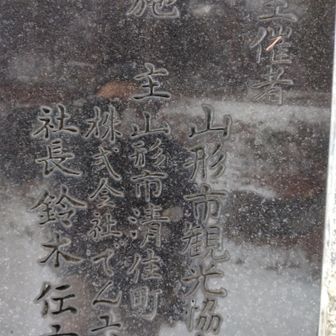 主催者
山形市観光協
施主 山形市清住町
株式会社でん
社長 鈴木伝